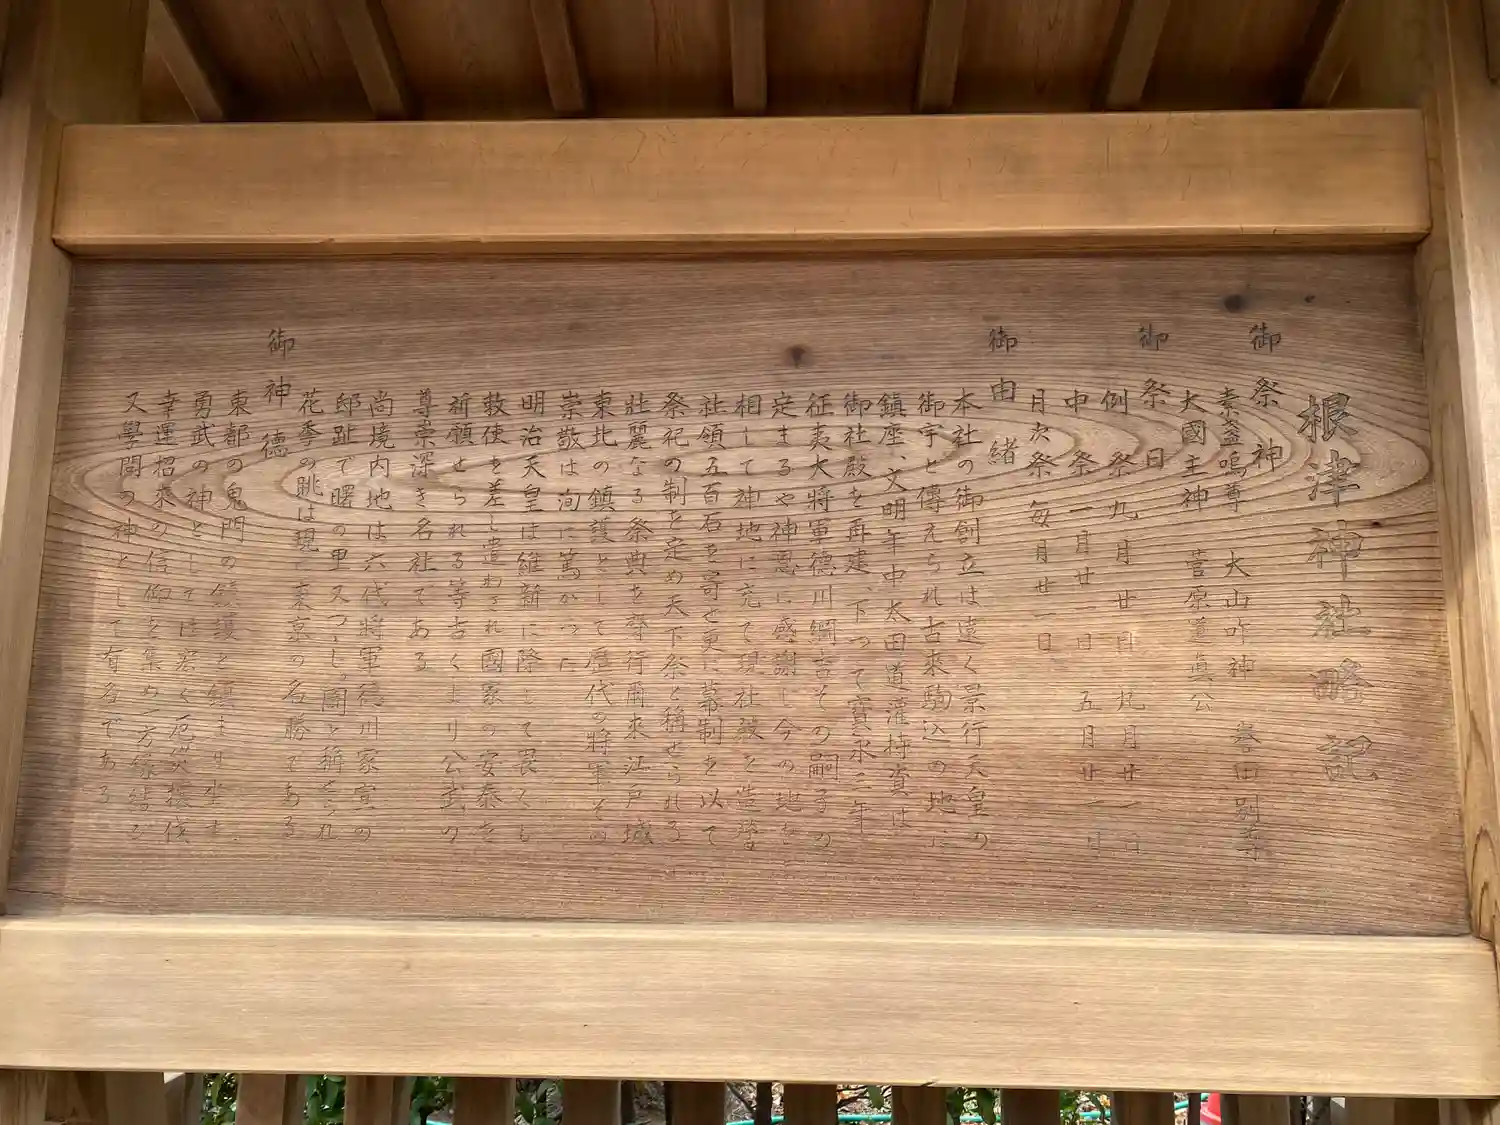 根津神社略記
御祭神
素盞嗚尊 大山咋神 誉田別尊
大國主神 菅原道真公
御祭日
例祭九月廿日 九月廿一日
中祭一月廿一日 五月廿一日
月次祭毎月廿一日
御由緒
本社の御創立は遠く景行天皇の
御宇と傳えられ古来駒込の地に
鎮座、文明年中太田道灌持資は
御社殿を再建、下つて寳永三年
征夷大将軍徳川綱吉その嗣子の
定まるや神恩に感謝し今の地を
相して神地に充て現社殿を造営
社領五百石を寄せ更に幕制を以て
祭祀の制を定め天下祭と稱せられる
壯麗なる祭典を齋行爾来江戸城
東北の鎮護として歴代の将軍その
崇敬は洵に篤かつた
明治天皇は維新に際して畏くも
敕使を差し遣わされ國家の安泰を
祈願せられる等古くより公武の
尊崇深き名社である
尚境内地は六代将軍徳川家宣の
邸趾で曙の里又つゝじヶ岡と稱せられ
花季の眺は現に東京の名勝である
御神徳
東都の鬼門の鎮護と鎮まり坐し
勇武の神としては宏く厄災攘伐
幸運招来の信仰を集め一方縁結び
又學問の神として有名である